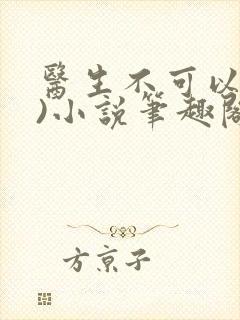 醫生不可以
)小說筆趣閣
方京子